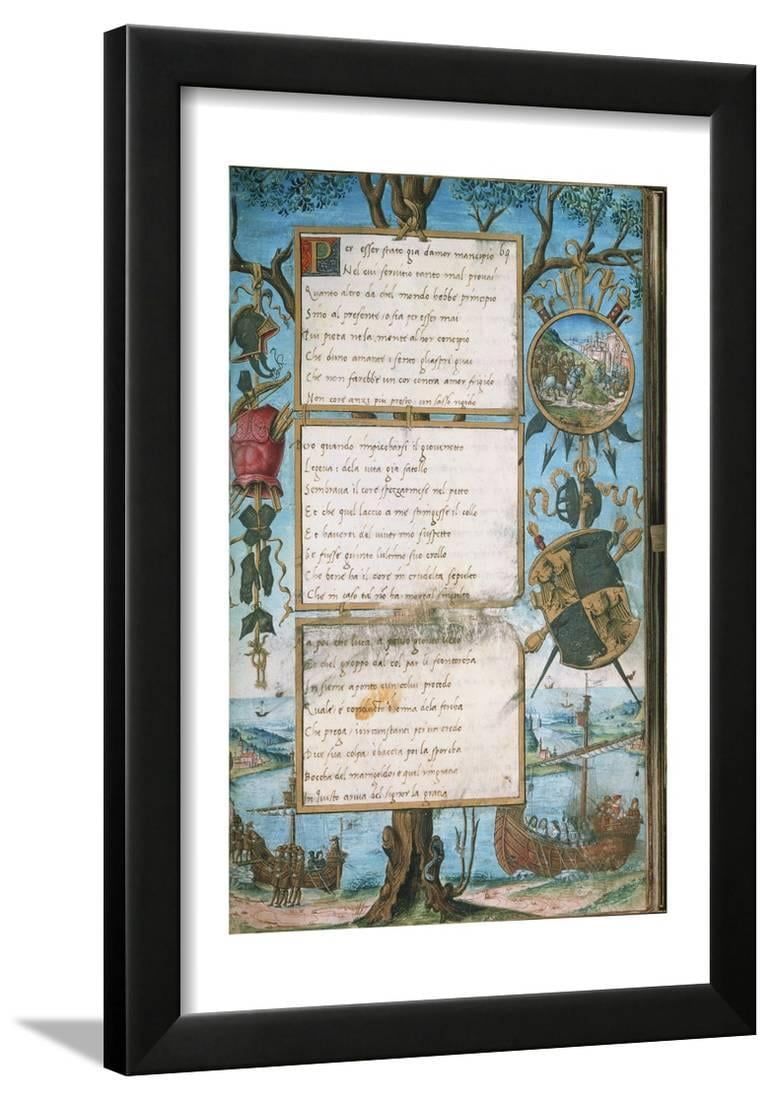 Per esser stato gia damor mancipio 69
Nel cui servitio tanto mal provai
Quanto altro da chel mondo hebbe principio
Sino al presente, o sia per esser mai
nela mente alhor concipio
Che duno amante i sento gliaspri guai
Che non farebbe un cor contra amor frigido
Non core anzi piu presto un sasso rigido
Pero quando impiccharsi il giovenetto
Legeva: dela vita gia satollo
Sembrava il core spezzarmese nel petto
Et che quel laccio a me stringesse il collo
Et haverei del viver mio suspetto
Se fusse giunto lultimo suo crollo
Che bene ha il core in crudelta sepulto
Che in caso tal no ha mortal
a poi che luca, a
Et chel groppo dal col par li scontorcha
Insieme aponto cun colui procedo
Quale, e conducto i cima dela forcha
Che prega, i circunstanti per un credo
Dice sua colpa, e baccia poi la sporcha
Boccha del manigoldo e qual
Iniusto ariva del signor la gratia